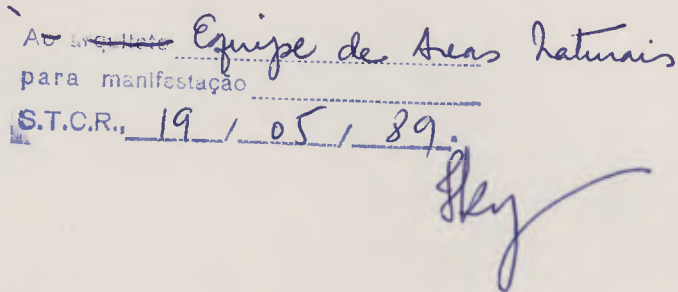 À Ao arquiteto Equipe de Areas Naturais
para manifestação
S.T.C.R., 19 / 05 / 89.